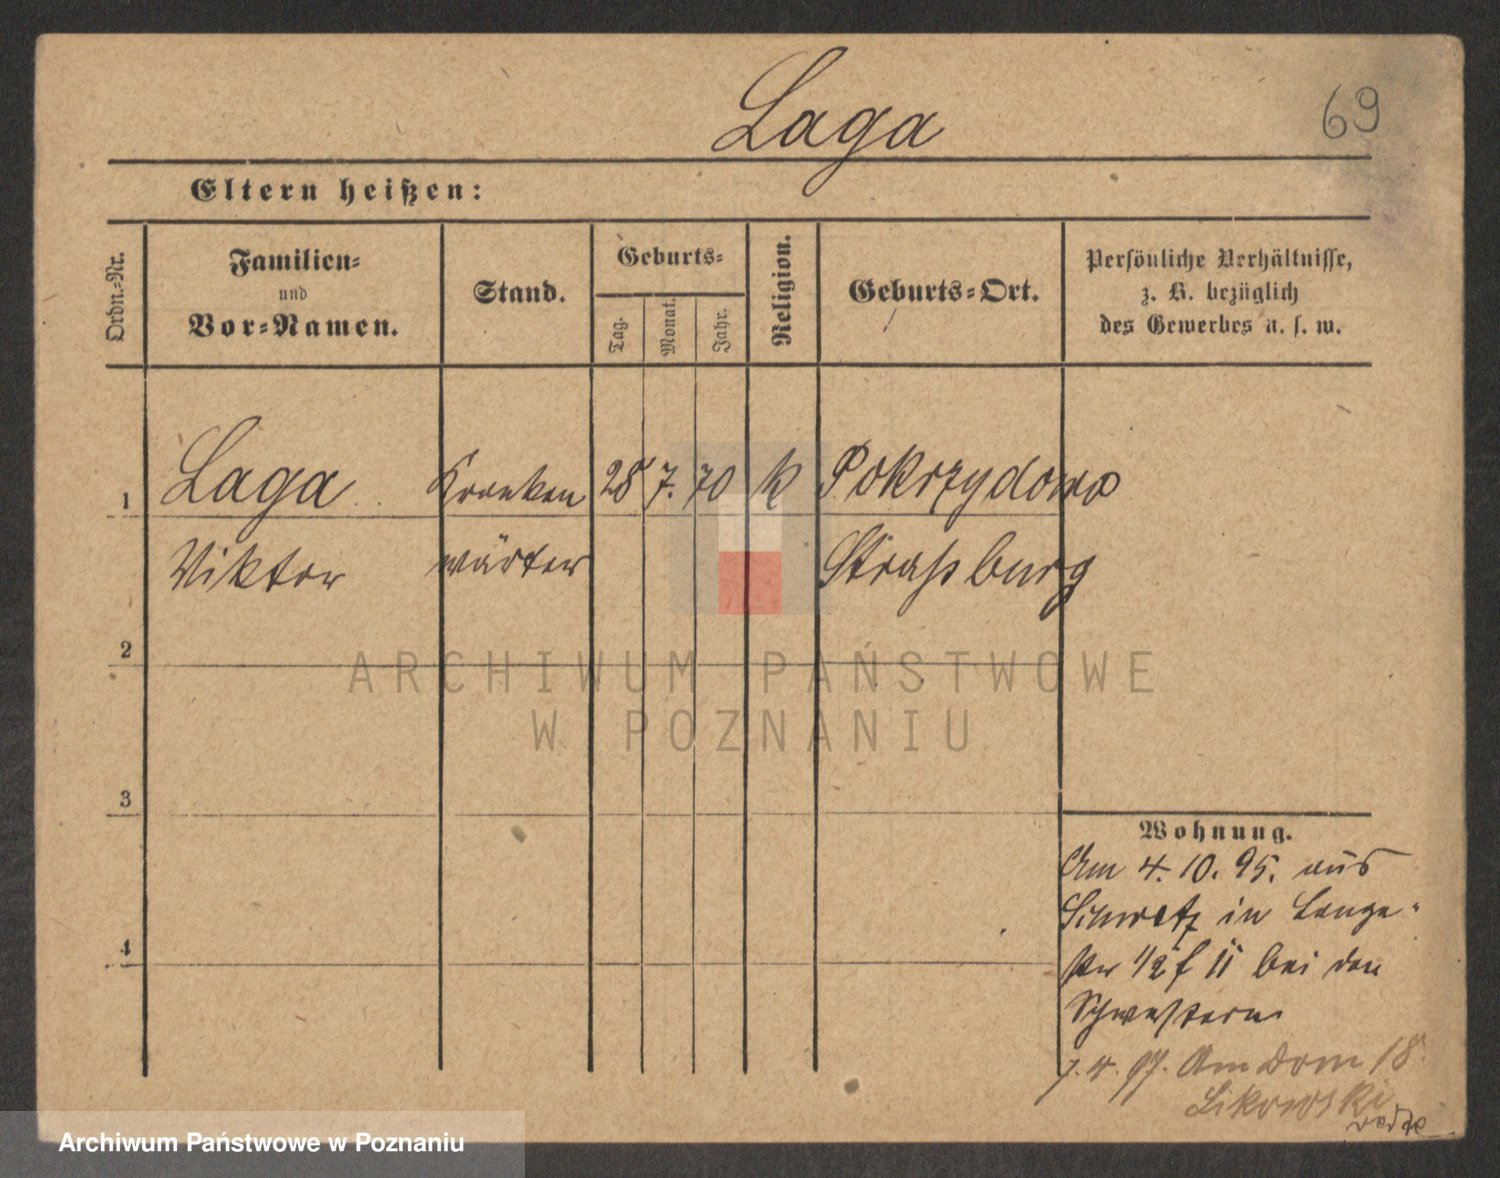 Laga
69
Eltern heißen:
Ordn.-Nr.
Familien-
und
Vor-Namen.
Stand.
Geburts-
Tag.
Monat.
Jahr.
Religion.
Geburts-Ort.
Persönliche Verhältnisse,
z. B. bezüglich
des Gewerbes u. s. w.
1 Laga Kranken 28 7. 70 k Pokrzydowo
Viktor wärter Straßburg
2
3
4
Wohnung.
Am 4. 10. 95. aus
Schwetz in Lange-
str 1/2 f II bei den
Schwestern
7. 4. 97. Am Dom 18.
Likowski
ARCHIWUM PAŃSTWOWE
W POZNANIU
Archiwum Państwowe w Poznaniu